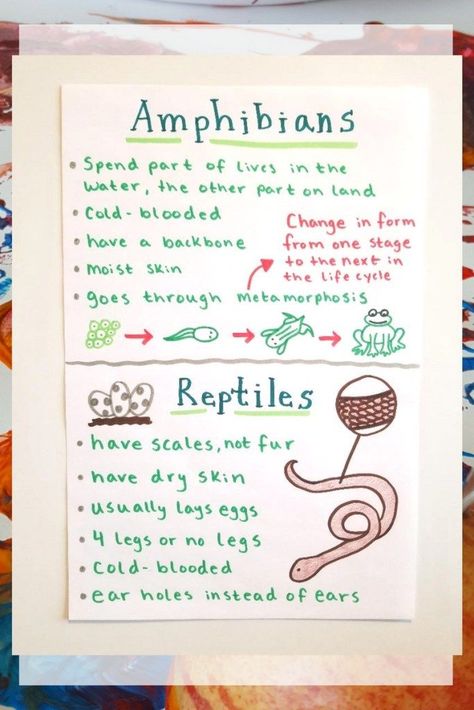 Amphibians
• Spend part of lives in the
water, the other part on land
• Cold-blooded
• have a backbone
• moist skin
• goes through metamorphosis
Change in form
from one stage
to the next in
the life cycle
Reptiles
• have scales, not fur
• have dry skin
• usually lays eggs
• 4 legs or no legs
• Cold-blooded
• ear holes instead of ears